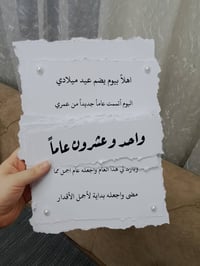 اهلاً بيوم يضم عيد ميلادي
اليوم أتممت عاماً جديداً من عمري
واحد وعشرون عاماً
وبارك لي في هذا العام واجعله عام اجمل مما
مضى واجعله بداية لأجمل الأقدار